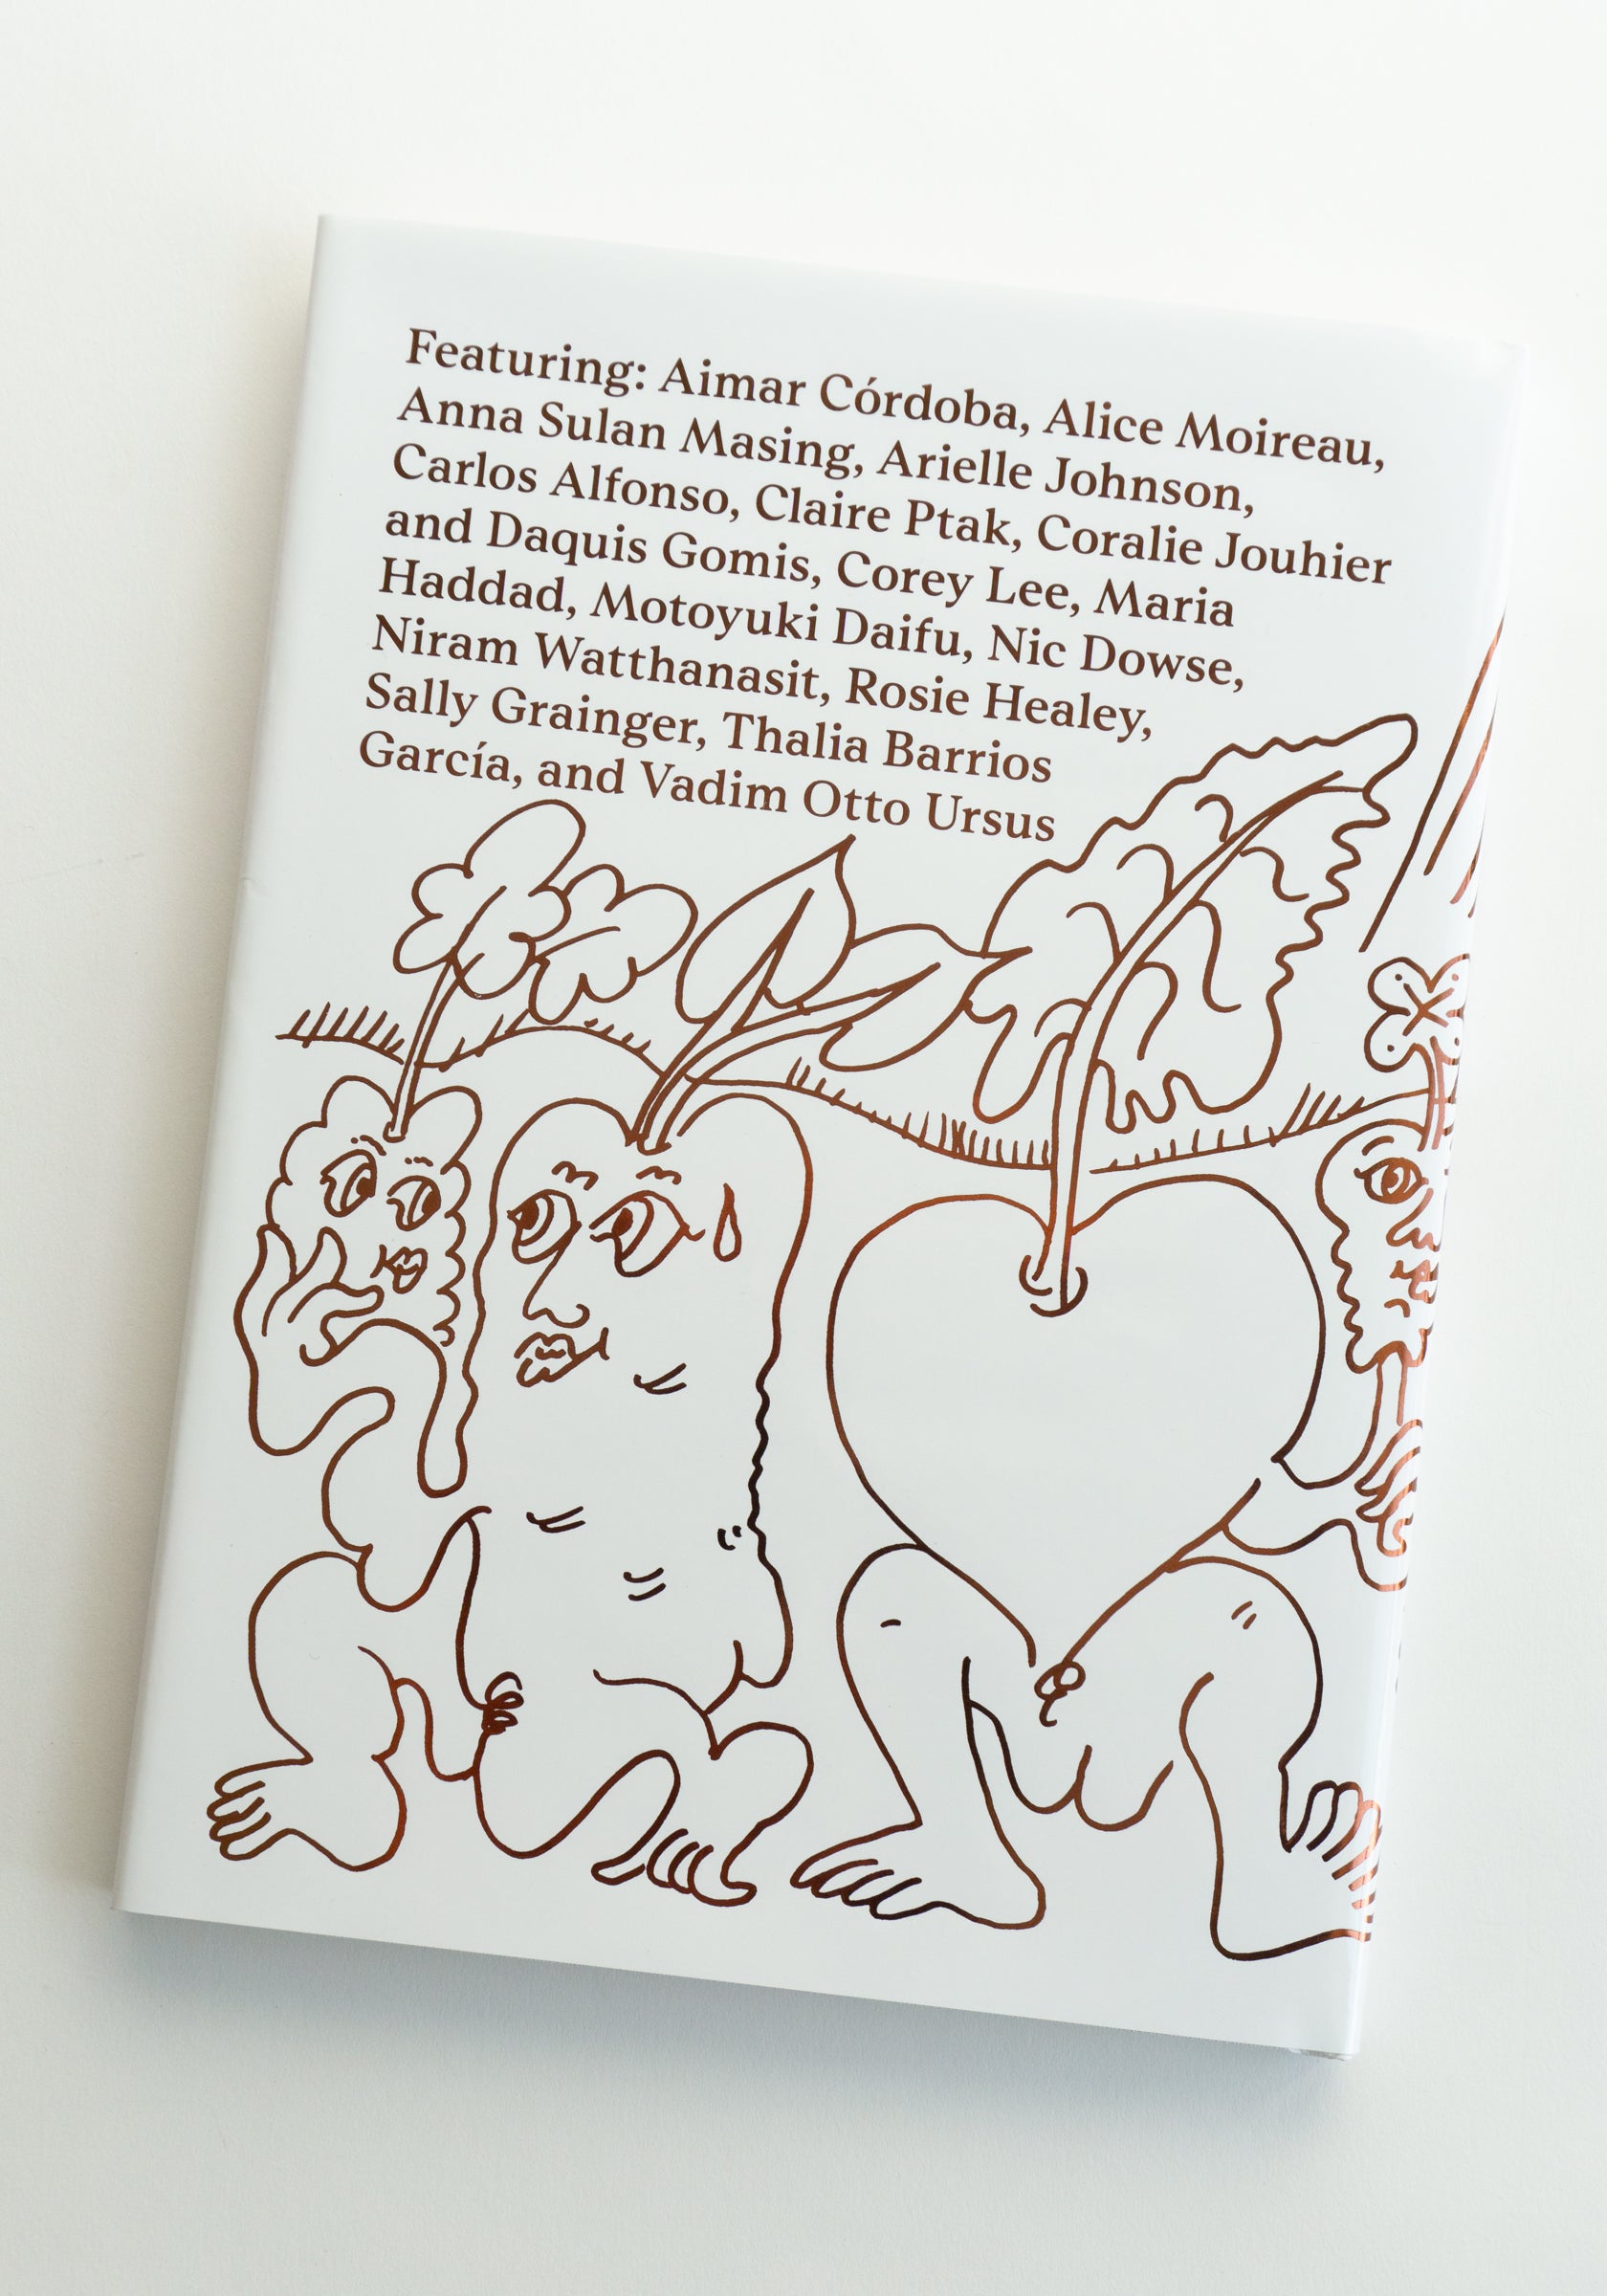 Featuring: Aimar Córdoba, Alice Moireau,
Anna Sulan Masing, Arielle Johnson,
Carlos Alfonso, Claire Ptak, Coralie Jouhier
and Daquis Gomis, Corey Lee, Maria
Haddad, Motoyuki Daifu, Nic Dowse,
Niram Watthanasit, Rosie Healey,
Sally Grainger, Thalia Barrios
García, and Vadim Otto Ursus